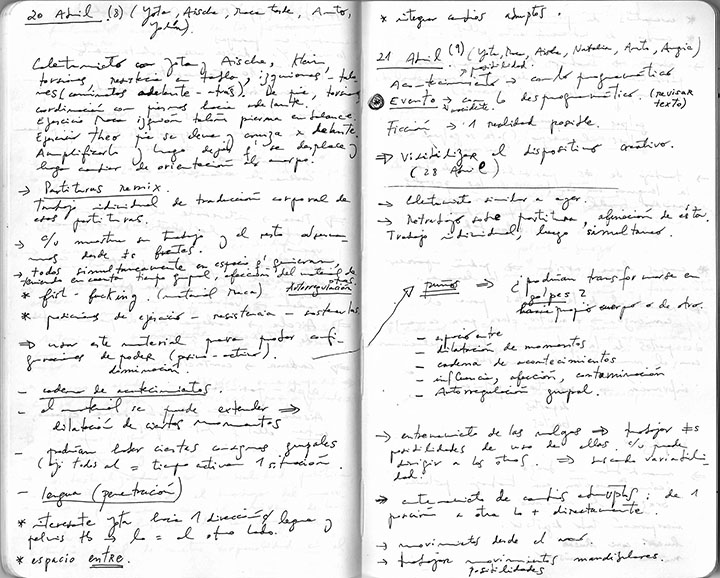 20 Abril (8) (Jota, Aische, Maca
Calentamiento con Jota y Aische,
torsiones, resistencia en
(caminatas adelante - atrás). De pie, torsión
coordinación con piernas hacia adelante.
Ejercicio Maca pierna en balance.
Ejercicio Theo pie se eleva y cruza x delante.
Amplificarlo y luego dejar q' se desplace y
luego cambiar de orientación el cuerpo.
→ Partituras remix.
Trabajo individual de traducción corporal de
esas partituras.
→ c/u muestra su trabajo y el resto
desde
→ todos simultáneamente en espacio q' quieran,
teniendo en cuenta tiempo grupal, afección del material de
otros.
* fist-fucking. (material Maca) Autorregulación
* posiciones de ejercicio - resistencia - sostenerlas
⇒ usar este material para poder
de poder (pasivo-activo).
dominación.
- cadena de acontecimientos.
- el material se puede extender ⇒
dilatación de ciertos momentos
- podrían haber ciertas grupales
(ej todos al = tiempo activan 1 situación.
- lengua (penetración)
* interesante Jota hacia 1 dirección c/ lengua y
pelvis lo = al otro lado.
* espacio entre.
* integrar cambios abruptos.
21 Abril (9) (Jota, Maca, Aische, Natalia, Anto, Angie)
posibilidad
Acontecimiento → cambio programático
Evento → cambio desprogramático. (revisar
texto)
Ficción → 1 realidad posible.
⇒ Visibilizar el dispositivo creativo.
(28 Abril)
→ Calentamiento similar a ayer.
→ Retrabajo sobre partitura, afinación de ésta.
Trabajo individual, luego simultáneo.
puños ⇒ ¿podrían transformarse en
golpes?
hacia propio cuerpo o de otro.
- espacio entre
- dilatación de momentos
- cadena de acontecimientos
- influencia, afección, contaminación
- Autorregulación grupal.
→ entrenamiento de las nalgas ⇒ trabajar ≠s
posibilidades de uso de ellas. c/u puede
dirigir a los otros. ⇒ buscando variabili-
dad
→ entrenamiento de cambios abruptos: de 1
posición a otra lo + directamente.
→ movimientos desde el
→ trabajar movimientos mandibulares.
posibilidades